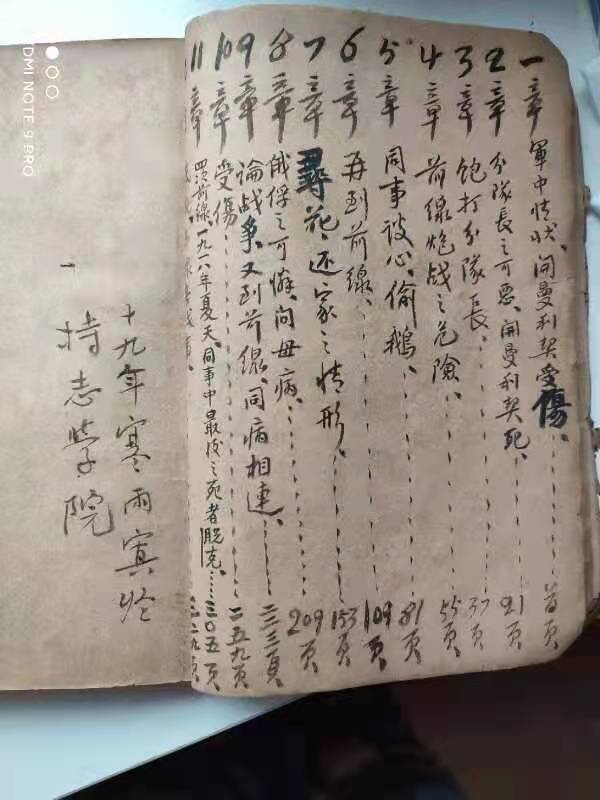 一章 軍中情狀、開曼利契受傷、首页
2章 分隊長之可惡、開曼利契死、21页
3章 飽打分隊長。37页
4章 前線炮战之危險、55页
5章 同事談心、偷鵝、81页
6章 再到前線、109页
7章 尋花、还家之情形、153页
8章 俄俘之可憐、问母病、209页
9章 論战争、又到前線、同病相連、二三三頁
10章 受傷、二五九页
11章 四次前線、一九一八年夏天、同事中最后之死者脱克、三〇五页
十九年寒雨寘於
持志學院
DMI NOTE 9 PRO